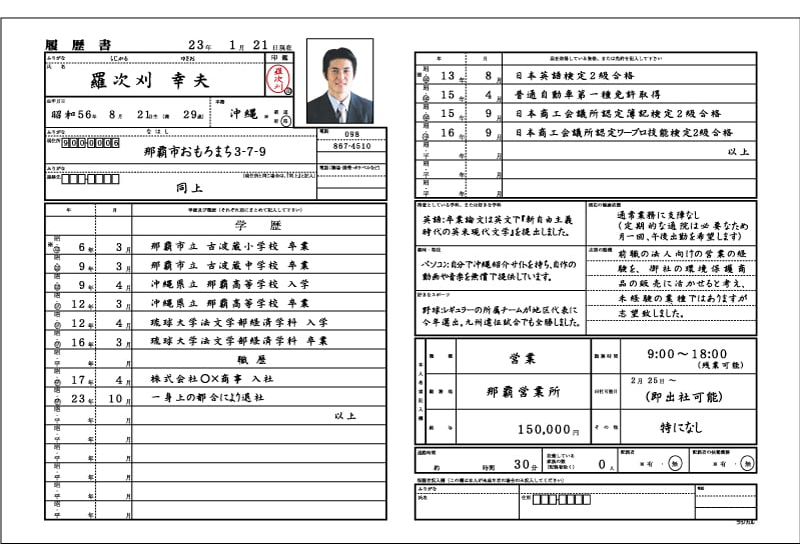 履歴書
23年 1月 21日現在
ふりがな
氏名
羅次刈 幸夫
印鑑
羅次刈
生年月日
昭和56年 8月 21日生 (満 29歳)
沖縄
ふりがな なはし
現住所
900-0006
那覇市おもろまち3-7-9
電話
098
867-4510
ふりがな
同上
年 月
学歴
6年 3月 那覇市立 古波蔵小学校 卒業
9年 3月 那覇市立 古波蔵中学校 卒業
9年 4月 沖縄県立 那覇高等学校 入学
12年 3月 沖縄県立 那覇高等学校 卒業
12年 4月 琉球大学法文学部経済学科 入学
16年 3月 琉球大学法文学部経済学科 卒業
職歴
17年 4月 株式会社〇×商事 入社
23年 10月 一身上の都合により退社
以上
年 月
13年 8月 日本英語検定2級合格
15年 4月 普通自動車第一種免許取得
15年 9月 日本商工会議所認定簿記検定2級合格
16年 9月 日本商工会議所認定ワープロ技能検定2級合格
以上
英語:卒業論文は英文で『新自由主義
時代の英米現代文学』を提出しました。
通常業務に支障なし
(定期的な通院は必要なため
月一回、午後出勤を希望します)
パソコン:自分で沖縄紹介サイトを持ち、自作の
動画や音楽を無償で提供しています。
前職の法人向けの営業の経
験を、御社の環境保護商
品の販売に活かせると考え、
未経験の業種ではありますが
志望致しました。
好きなスポーツ
野球:レギュラーの所属チームが地区代表に
今年選出。九州遠征試合でも全勝しました。
本人希望記入欄
職種
営業
勤務時間
9:00〜18:00
(残業可能)
勤務地
那覇営業所
出社可能日
2月 25日〜
(即出社可能)
給与
150,000円
その他
特になし
通勤時間
約 時間 30分
0人
配偶者
※有・無
配偶者の扶養義務
※有・無
ふりがな
氏名
住所
電話
ラジカル